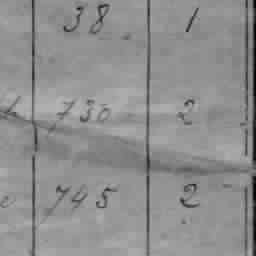 38 1
730 2
745 2